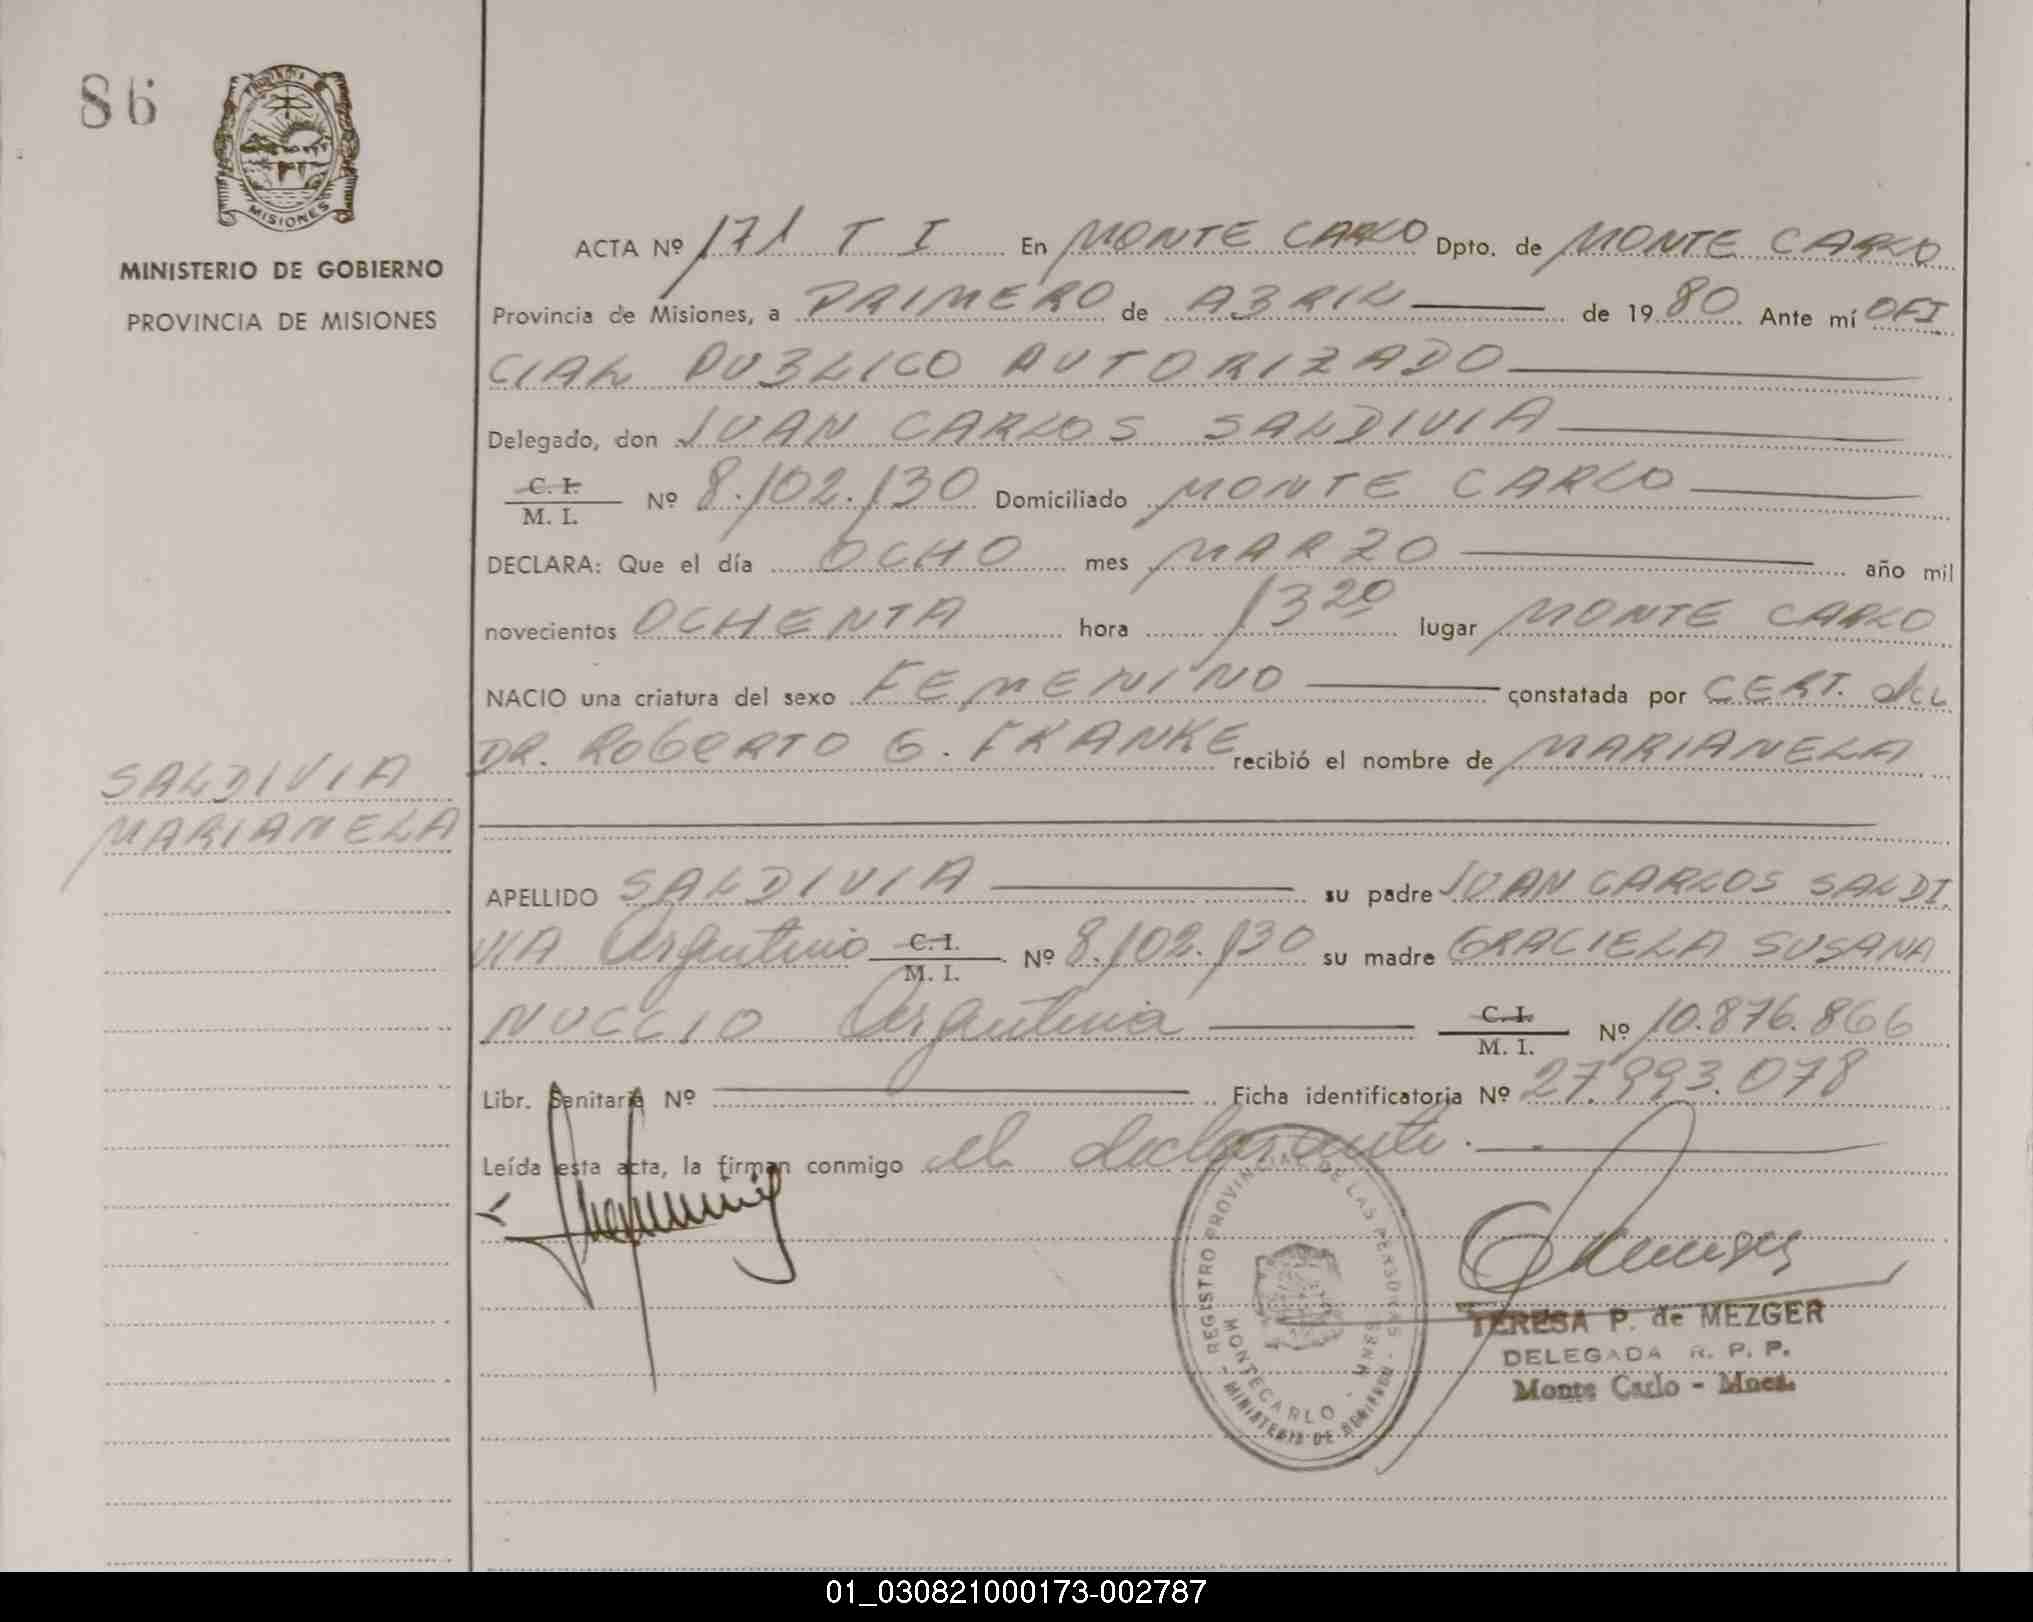 86
MISIONES
MINISTERIO DE GOBIERNO
PROVINCIA DE MISIONES
SALDIVIA
MARIANELA
ACTA Nº 171 T I En MONTE CARLO Dpto. de MONTE CARLO
Provincia de Misiones, a PRIMERO de ABRIL de 1980 Ante mí OFI
CIAL PUBLICO AUTORIZADO
Delegado, don JUAN CARLOS SALDIVIA
C. I.
M. I. Nº 8.102.130 Domiciliado MONTE CARLO
DECLARA: Que el día OCHO mes MARZO año mil
novecientos OCHENTA hora 13 20 lugar MONTE CARLO
NACIO una criatura del sexo FEMENINO constatada por CERT. del
DR. ROBERTO G. FRANKE recibió el nombre de MARIANELA
APELLIDO SALDIVIA su padre JUAN CARLOS SALDI
VIA Argentino C. I. M. I. Nº 8.102.130 su madre GRACIELA SUSANA
NUCCIO Argentina C. I. M. I. Nº 10.876.866
Libr. Sanitaria Nº Ficha identificatoria Nº 27.993.078
Leída esta acta, la firman conmigo el declarante.
REGISTRO PROVINCIAL DE LAS PERSONAS
MONTECARLO - MNES
MINISTERIO DE GOBIERNO
TERESA P. de MEZGER
DELEGADA R. P. P.
Monte Carlo - Mnes.
01_030821000173-002787